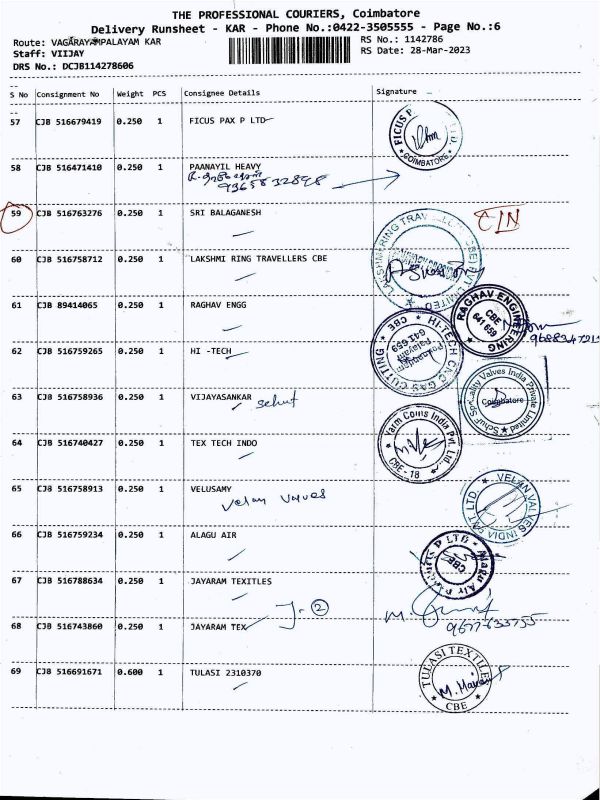 THE PROFESSIONAL COURIERS, Coimbatore
Delivery Runsheet - KAR - Phone No.:0422-3505555 - Page No.:6
Route: VAGARAYAMPALAYAM KAR
RS No.: 1142786
Staff: VIIJAY
RS Date: 28-Mar-2023
DRS No.: DCJB114278606
S No Consignment No Weight PCS Consignee Details Signature
57 CJB 516679419 0.250 1 FICUS PAX P LTD
FICUS P LTD. COIMBATORE
58 CJB 516471410 0.250 1 PAANAYIL HEAVY
9365832898
59 CJB 516763276 0.250 1 SRI BALAGANESH
60 CJB 516758712 0.250 1 LAKSHMI RING TRAVELLERS CBE
LAKSHMI RING TRAVELLERS (CBE) PVT LIMITED
61 CJB 89414065 0.250 1 RAGHAV ENGG
RAGHAV ENGINEERING CBE 641 659
62 CJB 516759265 0.250 1 HI -TECH
HI.TECH CNC GAS CUTTING CBE 641 659
63 CJB 516758936 0.250 1 VIJAYASANKAR
Speciality Valves India Private Limited Coimbatore
64 CJB 516740427 0.250 1 TEX TECH INDO
Yarm Coms India Pvt. Ltd CBE - 18
65 CJB 516758913 0.250 1 VELUSAMY
Velan Valves
VELAN VALVES INDIA PVT LTD
66 CJB 516759234 0.250 1 ALAGU AIR
Alagu Air P LTD CBE
67 CJB 516788634 0.250 1 JAYARAM TEXITLES
J. 2
68 CJB 516743860 0.250 1 JAYARAM TEX
9677633755
69 CJB 516691671 0.600 1 TULASI 2310370
TULASI TEXTILES CBE